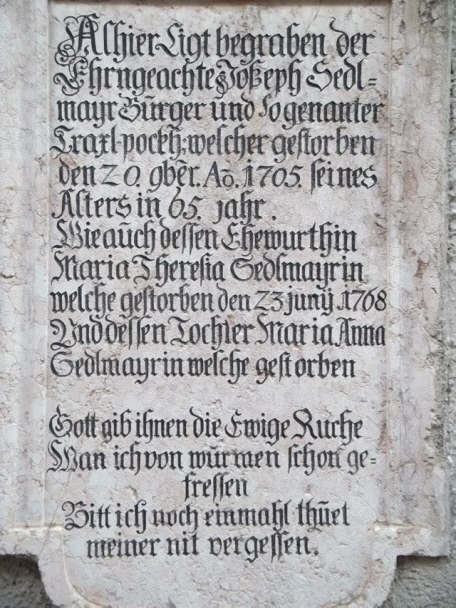 Alhier Ligt begraben der
Ehrngeachte Joßeph Sedl=
mayr Bürger und so genanter
Traxl pöckh, welcher gestorben
den 20. 9bēr. Aō. 1705. seines
Alters in 65. jahr.
Wie auch dessen Ehewürthin
Maria Theresia Sedlmayrin
welche gestorben den 23 junÿ 1768
Und dessen Tochter Maria Anna
Sedlmayrin welche gestorben
Gott gib ihnen die Ewige Ruche
Wan ich von würmen schon ge=
fressen
Bitt ich noch einmahl thūet
meiner nit vergessen.